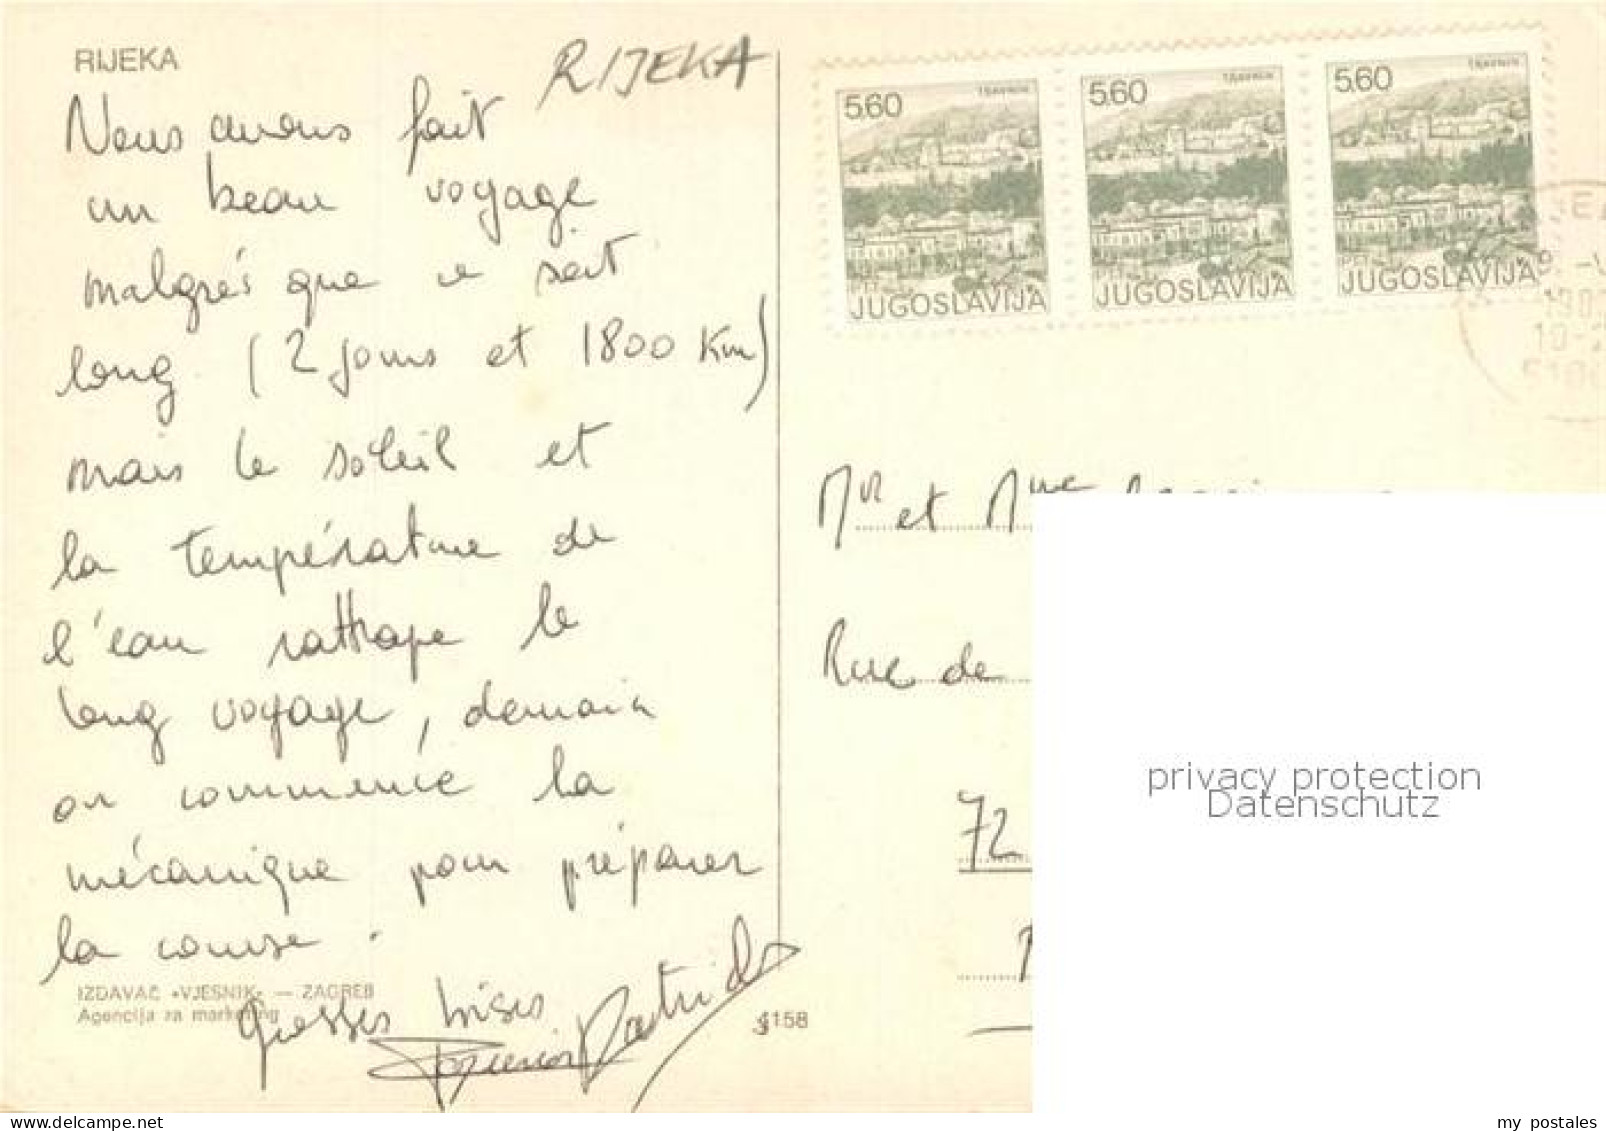 RIJEKA
RIJEKA
Nous avons fait
un beau voyage
malgrés que ce soit
long (2 jours et 1800 Km)
mais le soleil et
la température de
l'eau rattrape le
long voyage, demain
on commence la
mécanique pour préparer
la course.
Grosses bises
Patrick
IZDAVAČ «VJESNIK» — ZAGREB
Agencija za marketing
4158
5,60 TRAVNIK
JUGOSLAVIJA
5,60 TRAVNIK
JUGOSLAVIJA
5,60 TRAVNIK
JUGOSLAVIJA
Mr et Mme
Rue de
72
privacy protection
Datenschutz
my postales